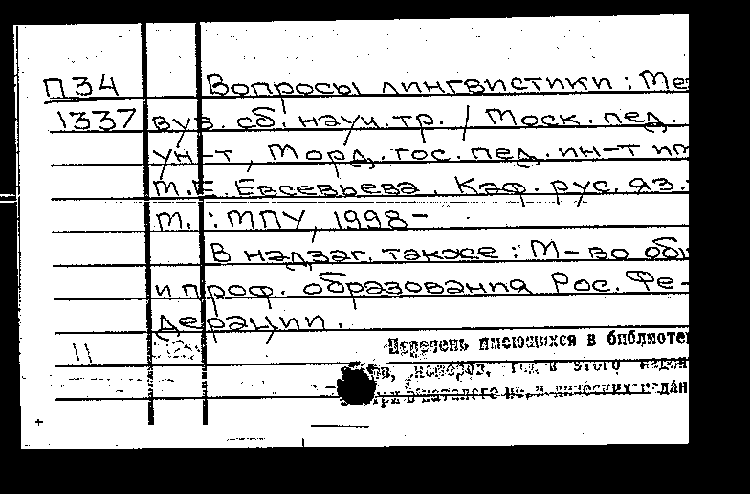 П34 Вопросы лингвистики: Ме
1337 вуз. сб. науч. тр. / Моск. пед.
ун-т, Морд. гос. пед. ин-т им
М.Е. Евсевьева. Каф. рус. яз.
М.: МПУ, 1998-
В надзаг. также: М-во общ
и проф. образования Рос. Фе-
дерации.
11 Перечень имеющихся в библиоте
номеров, год в этого издан
при в каталоге издан